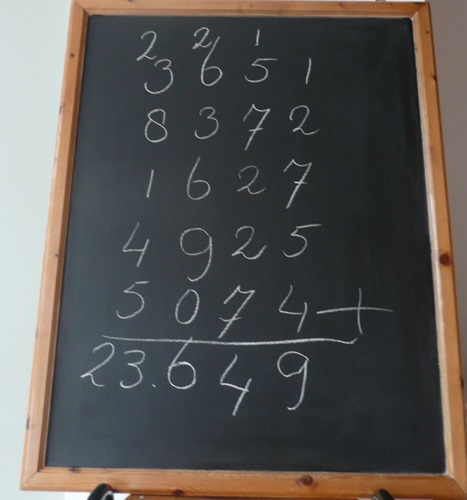 2 2 1
3 6 5 1
8 3 7 2
1 6 2 7
4 9 2 5
5 0 7 4 +
23.649